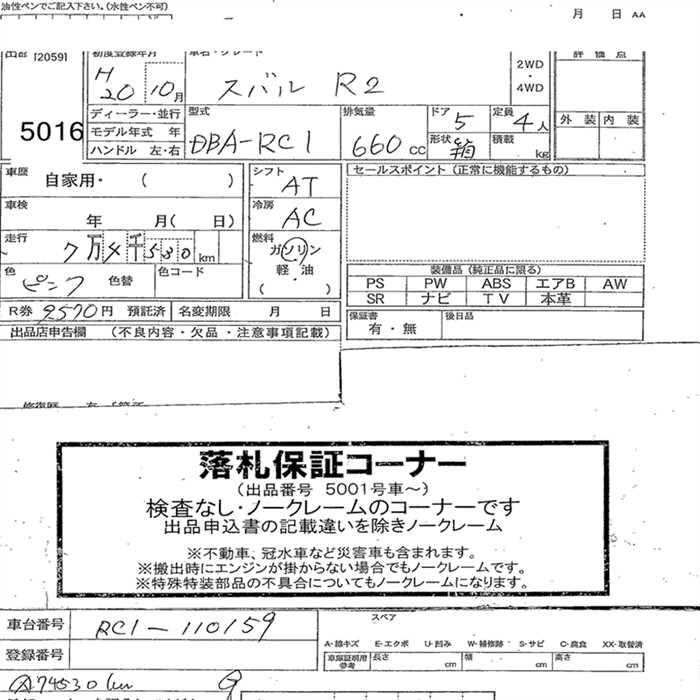 油性ペンでご記入下さい。(水性ペン不可)
月 日 AA
[20591
2WD
・
4WD
評 価 点
H
20 10月
スバル R2
5016
外 装 内 装
ディーラー・並行
モデル年式 年
ハンドル 左・右
型式
DBA-RC1
排気量
660cc
ドア 5
形状 箱
定員 4人
積載 kg
車歴
自家用・( )
車検
年 月( 日)
走行
7万4千530km
色
ピンク
色替
色コード
シフト
AT
冷房
AC
燃料
ガソリン
軽 油
( ・ )
セールスポイント (正常に機能するもの)
装備品(純正品に限る)
PS PW ABS エアB AW
SR ナビ TV 本革
R券 9570円 預託済 名変期限 月 日
保証書
有・無
後日品
出品店申告欄 (不良内容・欠品・注意事項記載)
落札保証コーナー
(出品番号 5001号車~)
検査なし・ノークレームのコーナーです
出品申込書の記載違いを除きノークレーム
※不動車、冠水車など災害車も含まれます。
※搬出時にエンジンが掛からない場合でもノークレームです。
※特殊特装部品の不具合についてもノークレームになります。
車台番号 RC1-110159
登録番号
スペア
A-線キズ E-エクボ U-凹み W-補修跡 S-サビ C-腐食 XX-取替済
車庫証明用参考 長さ cm 幅 cm 高さ cm
74530km